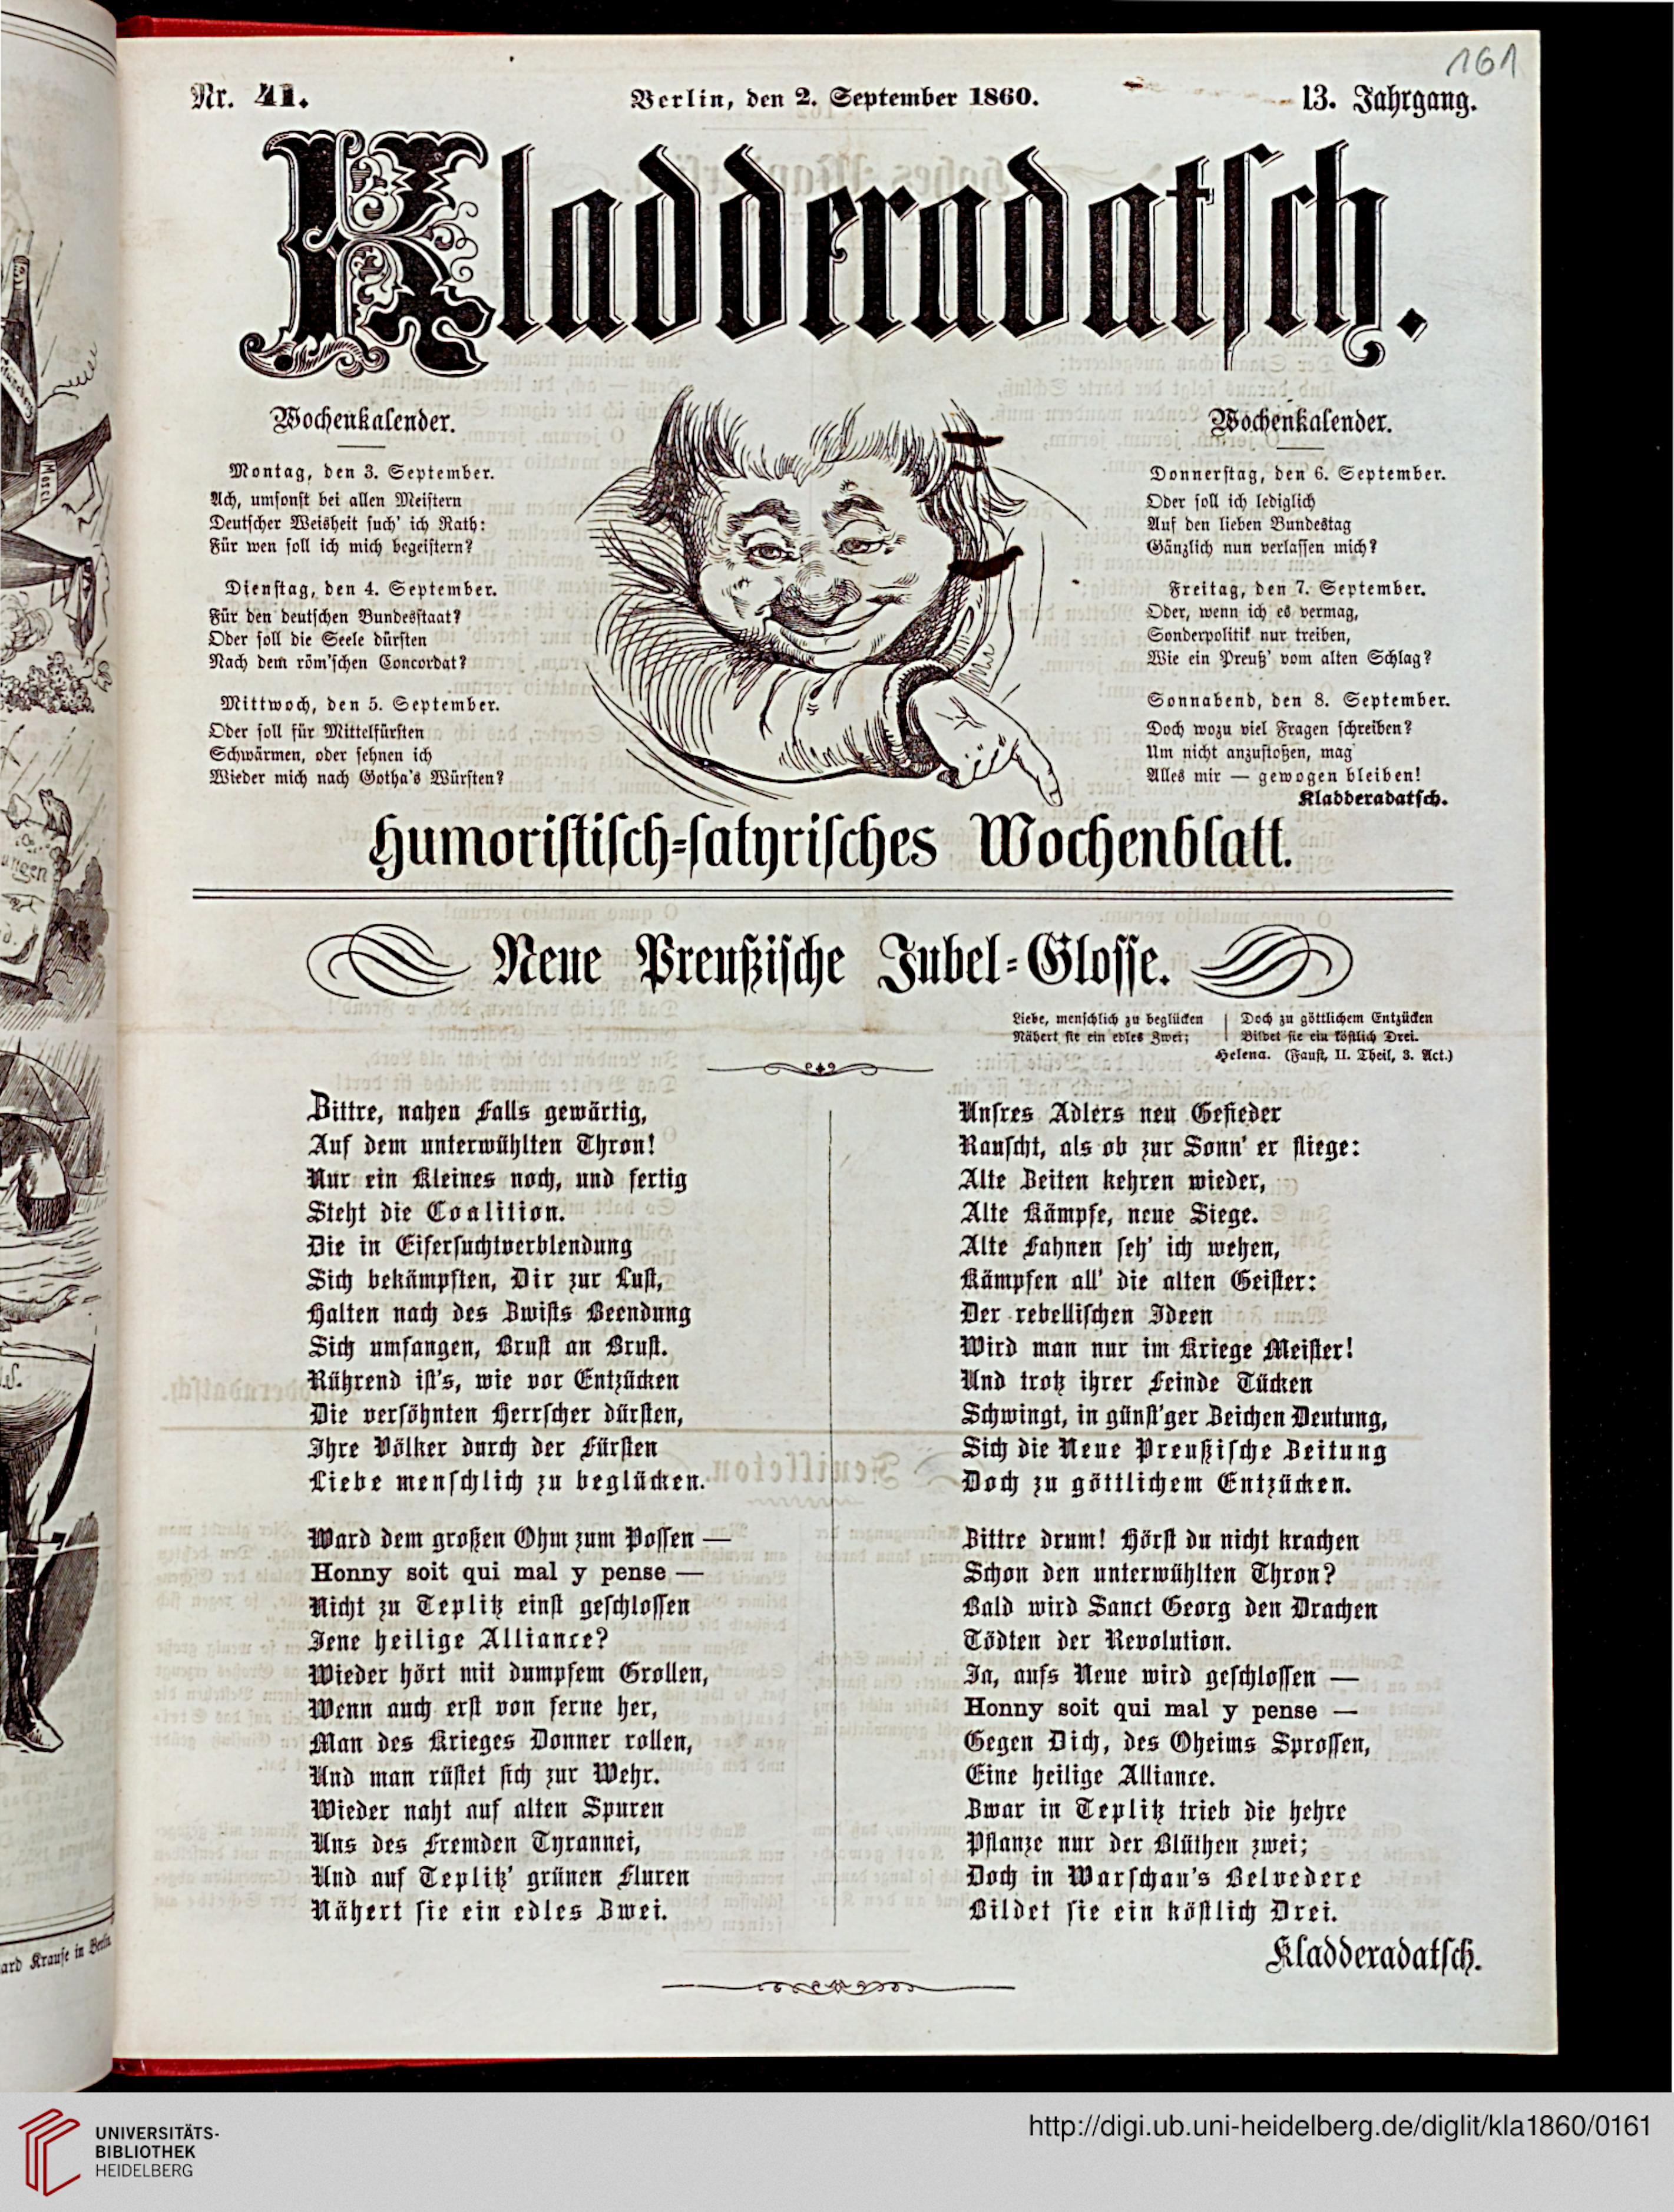 161
Nr. 41.
Berlin, den 2. September 1860.
13. Jahrgang.
Kladderadatsch.
Wochenkalender.
Montag, den 3. September.
Ach, umsonst bei allen Meistern
Deutscher Weisheit such' ich Rath:
Für wen soll ich mich begeistern?
Dienstag, den 4. September.
Für den deutschen Bundesstaat?
Oder soll die Seele dürsten
Nach dem röm'schen Concordat?
Mittwoch, den 5. September.
Oder soll für Mittelfürsten
Schwärmen, oder sehnen ich
Wieder mich nach Gotha's Würsten?
Wochenkalender.
Donnerstag, den 6. September.
Oder soll ich lediglich
Auf den lieben Bundestag
Gänzlich nun verlassen mich?
Freitag, den 7. September.
Oder, wenn ich es vermag,
Sonderpolitik nur treiben,
Wie ein Preuß' vom alten Schlag?
Sonnabend, den 8. September.
Doch wozu viel Fragen schreiben?
Um nicht anzustoßen, mag
Alles mir — gewogen bleiben!
Kladderadatsch.
Humoristisch-satyrisches Wochenblatt.
Neue Preußische Jubel-Glosse.
Liebe, menschlich zu beglücken
Nähert sie ein edles Zwei;
Doch zu göttlichem Entzücken
Bildet sie ein köstlich Drei.
Helena. (Faust, II. Theil, 3. Act.)
Zittre, nahen Falls gewärtig,
Auf dem unterwühlten Thron!
Nur ein Kleines noch, und fertig
Steht die Coalition.
Die in Eifersuchtverblendung
Sich bekämpften, Dir zur Lust,
Halten nach des Zwists Beendung
Sich umfangen, Brust an Brust.
Rührend ist's, wie vor Entzücken
Die versöhnten Herrscher dürsten,
Ihre Völker durch der Fürsten
Liebe menschlich zu beglücken.
Ward dem großen Ohm zum Possen —
Honny soit qui mal y pense —
Nicht zu Teplitz einst geschlossen
Jene heilige Alliance?
Wieder hört mit dumpfem Grollen,
Wenn auch erst von ferne her,
Man des Krieges Donner rollen,
Und man rüstet sich zur Wehr.
Wieder naht auf alten Spuren
Uns des Fremden Tyrannei,
Und auf Teplitz' grünen Fluren
Nähert sie ein edles Zwei.
Unsres Adlers neu Gefieder
Rauscht, als ob zur Sonn' er stiege:
Alte Zeiten kehren wieder,
Alte Kämpfe, neue Siege.
Alte Fahnen seh' ich wehen,
Kämpfen all' die alten Geister:
Der rebellischen Ideen
Wird man nur im Kriege Meister!
Und trotz ihrer Feinde Tücken
Schwingt, in günst'ger Zeichen Deutung,
Sich die Neue Preußische Zeitung
Doch zu göttlichem Entzücken.
Zittre drum! Hörst du nicht krachen
Schon den unterwühlten Thron?
Bald wird Sanct Georg den Drachen
Tödten der Revolution.
Ja, aufs Neue wird geschlossen —
Honny soit qui mal y pense —
Gegen Dich, des Oheims Sprossen,
Eine heilige Alliance.
Zwar in Teplitz trieb die hehre
Pflanze nur der Blüthen zwei;
Doch in Warschau's Belvedere
Bildet sie ein köstlich Drei.
Kladderadatsch.
Mosel
ard Krause in Berlin
UNIVERSITÄTS-
BIBLIOTHEK
HEIDELBERG
http://digi.ub.uni-heidelberg.de/diglit/kla1860/0161